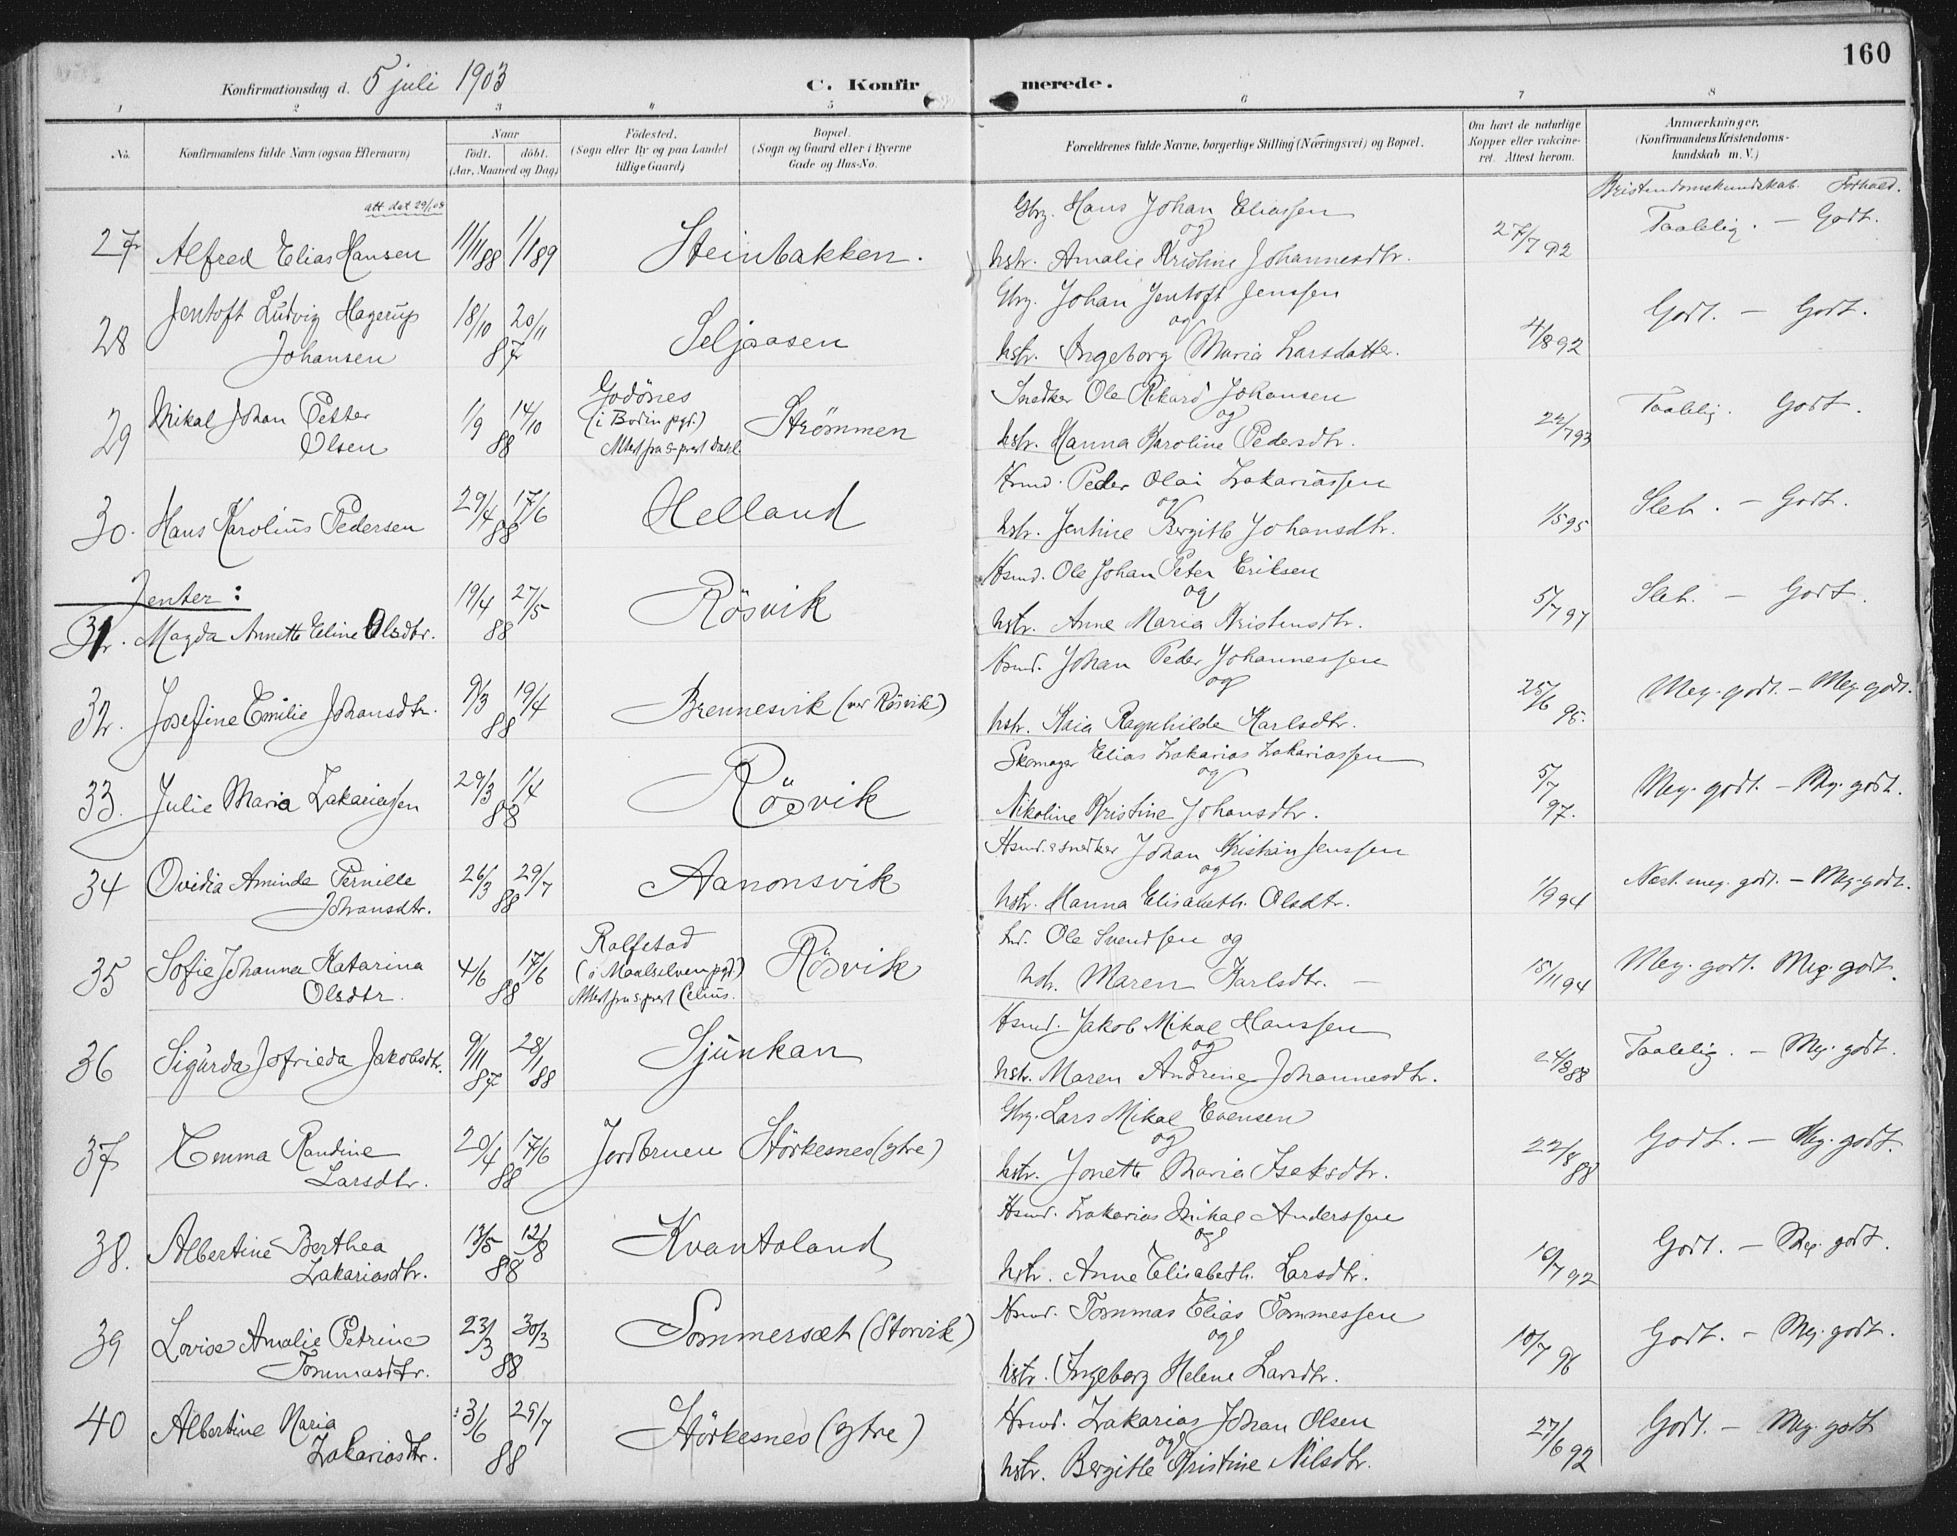 160
Konfirmationsdag d. 5 juli 1903
C. Konfirmerede.
1 2 3 4 5 6 7 8
No.
Konfirmandens fulde Navn (ogsaa Efternavn)
Naar
Födt. döbt.
(Aar, Maaned og Dag)
Födested.
(Sogn eller By og paa Landet
tillige Gaard)
Bopæl.
(Sogn og Gaard eller i Byerne
Gade og Hus-No.
Forældrenes fulde Navne, borgerlige Stilling (Næringsvei) og Bopæl.
Om havt de naturlige
Kopper eller vakcine-
ret. Attest herom.
Anmærkninger.
(Konfirmandens Kristendoms-
kundskab m. V.)
Kristendomskundskab. Forhold.
att. dat 29/1 08
27 Alfred Elias Hansen 11/11 88 1/1 89 Steinbakken.
Gbrg. Hans Johan Eliassen
og
hstr. Amalie Kristine Johannesdtr. 27/7 92 Taalelig. — Godt.
28 Jentoft Ludvig Hagerup
Johansen 18/10 20/11 87 Seljeaasen
Gbrg. Johan Jentoft Jenssen
og
hstr. Ingeborg Maria Larsdatter. 4/8 92 Godt. — Godt.
29 Mikal Johan Petter
Olsen 1/9 14/10 88
Godönes
(i Bodin pgd.)
Attest fra s-prest Dahl
Strömmen
Snedker Ole Rikard Johansen
og
hstr. Hanna Karoline Pedersdtr. 22/7 93 Taalelig. Godt.
30. Hans Karolius Pedersen 29/4 17/6 88 Helland
Hsmd. Peder Olai Zakariassen
og
hstr. Jentine Bergitte Johansdtr. 1/5 95 Slet. — Godt.
Jenter:
31. Magda Annette Eline Olsdtr. 19/4 27/5 88 Rösvik
Hsmd. Ole Johan Peter Eriksen
og
hstr. Anne Maria Kristensdtr. 5/7 97 Slet. — Godt.
32. Josefine Emilie Johansdtr. 9/3 19/4 88 Brennesvik (ver Rösvik)
Hsmd. Johan Peder Johannessen
og
hstr. Kaia Ragnhilde Karlsdtr. 25/6 95. Meg. godt. — Meg. godt.
33. Julie Maria Zakariassen 29/3 1/4 88 Rösvik
Skomager Elias Zakarias Zakariassen
og
Nikoline Kristine Johansdtr. 5/7 97. Meg. godt. — Meg. godt.
34 Ovidia Aminda Pernille
Johansdtr. 26/3 29/7 88 Aanonsvik
Hsmd. & snedker Johan Kristian Jenssen
og
hstr. Hanna Elisabeth Olsdtr. 1/9 94 Næst. meg. godt. — Meg. godt.
35 Sofie Johanna Katarina
Olsdtr. 4/6 17/6 88
Rolfstad
(i Maalselven pgd)
Attest fra s. prest Celius.
Rösvik
Ole Svendsen og
hstr. Maren Karlsdtr. — 15/11 94 Meg. godt. Meg. godt.
36 Sigurda Jofrieda Jakobsdtr. 9/11 87 28/1 88 Sjunkan
Hsmd. Jakob Mikal Hanssen
og
hstr. Maren Andrine Johannesdtr. 24/8 88 Taalelig. — Meg. godt.
37 Emma Randine
Larsdtr. 20/4 17/6 88 Jordbruen Störkesnes (ytre)
Gbrg. Lars Mikal Evensen
og
hstr. Jonette Maria Isaksdtr. 22/8 88 Godt. — Meg. godt.
38. Albertine Berthea
Zakariasdtr. 13/5 12/8 88 Kvantoland
Hsmd. Zakarias Mikal Anderssen
og
hstr. Anne Elisabeth Larsdtr. 10/7 92 Godt. — Meg. godt.
39 Lovise Amalie Petrine
Tommasdtr. 23/3 30/3 88 Sommersæt (Storvik)
Hsmd. Tommas Elias Tommessen
og
hstr. Ingeborg Helene Larsdtr. 10/7 96 Godt. — Meg. godt.
40 Albertine Maria
Zakariasdtr. 3/6 29/7 88 Störkesnes (ytre)
Hsmd. Zakarias Johan Olsen
og
hstr. Bergitte Kristine Nilsdtr. 27/6 92 Godt. — Meg. godt